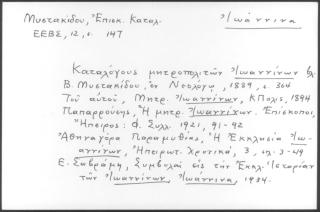 Μυστακίδου, Ἐπισκ. Καταλ. Ἰωάννινα
ΕΕΒΣ, 12, σ. 147
Καταλόγους μητροπολιτῶν Ἰωαννίνων βλ.
Β. Μυστακίδου, ἐν Νεολόγῳ, 1889, σ. 364
Τοῦ αὐτοῦ, Μητρ. Ἰωαννίνων, ΚΠολις, 1894
Παπαρρούσης, Ἡ μητρ. Ἰωαννίνων. Ἐπίσκοποι,
Ἤπειρος: Φ. Συλλ. 1921, 91-92
Ἀθηναγόρα Παραμυθίας, Ἡ Ἐκκλησία Ἰω-
αννίνων, Ἠπειρωτ. Χρονικά, 3, σελ. 3-49
Ε. Σαβράμη, Συμβολαί εἰς τὴν Ἐκκλ. Ἱστορίαν
τῶν Ἰωαννίνων, Ἰωάννινα, 1934.